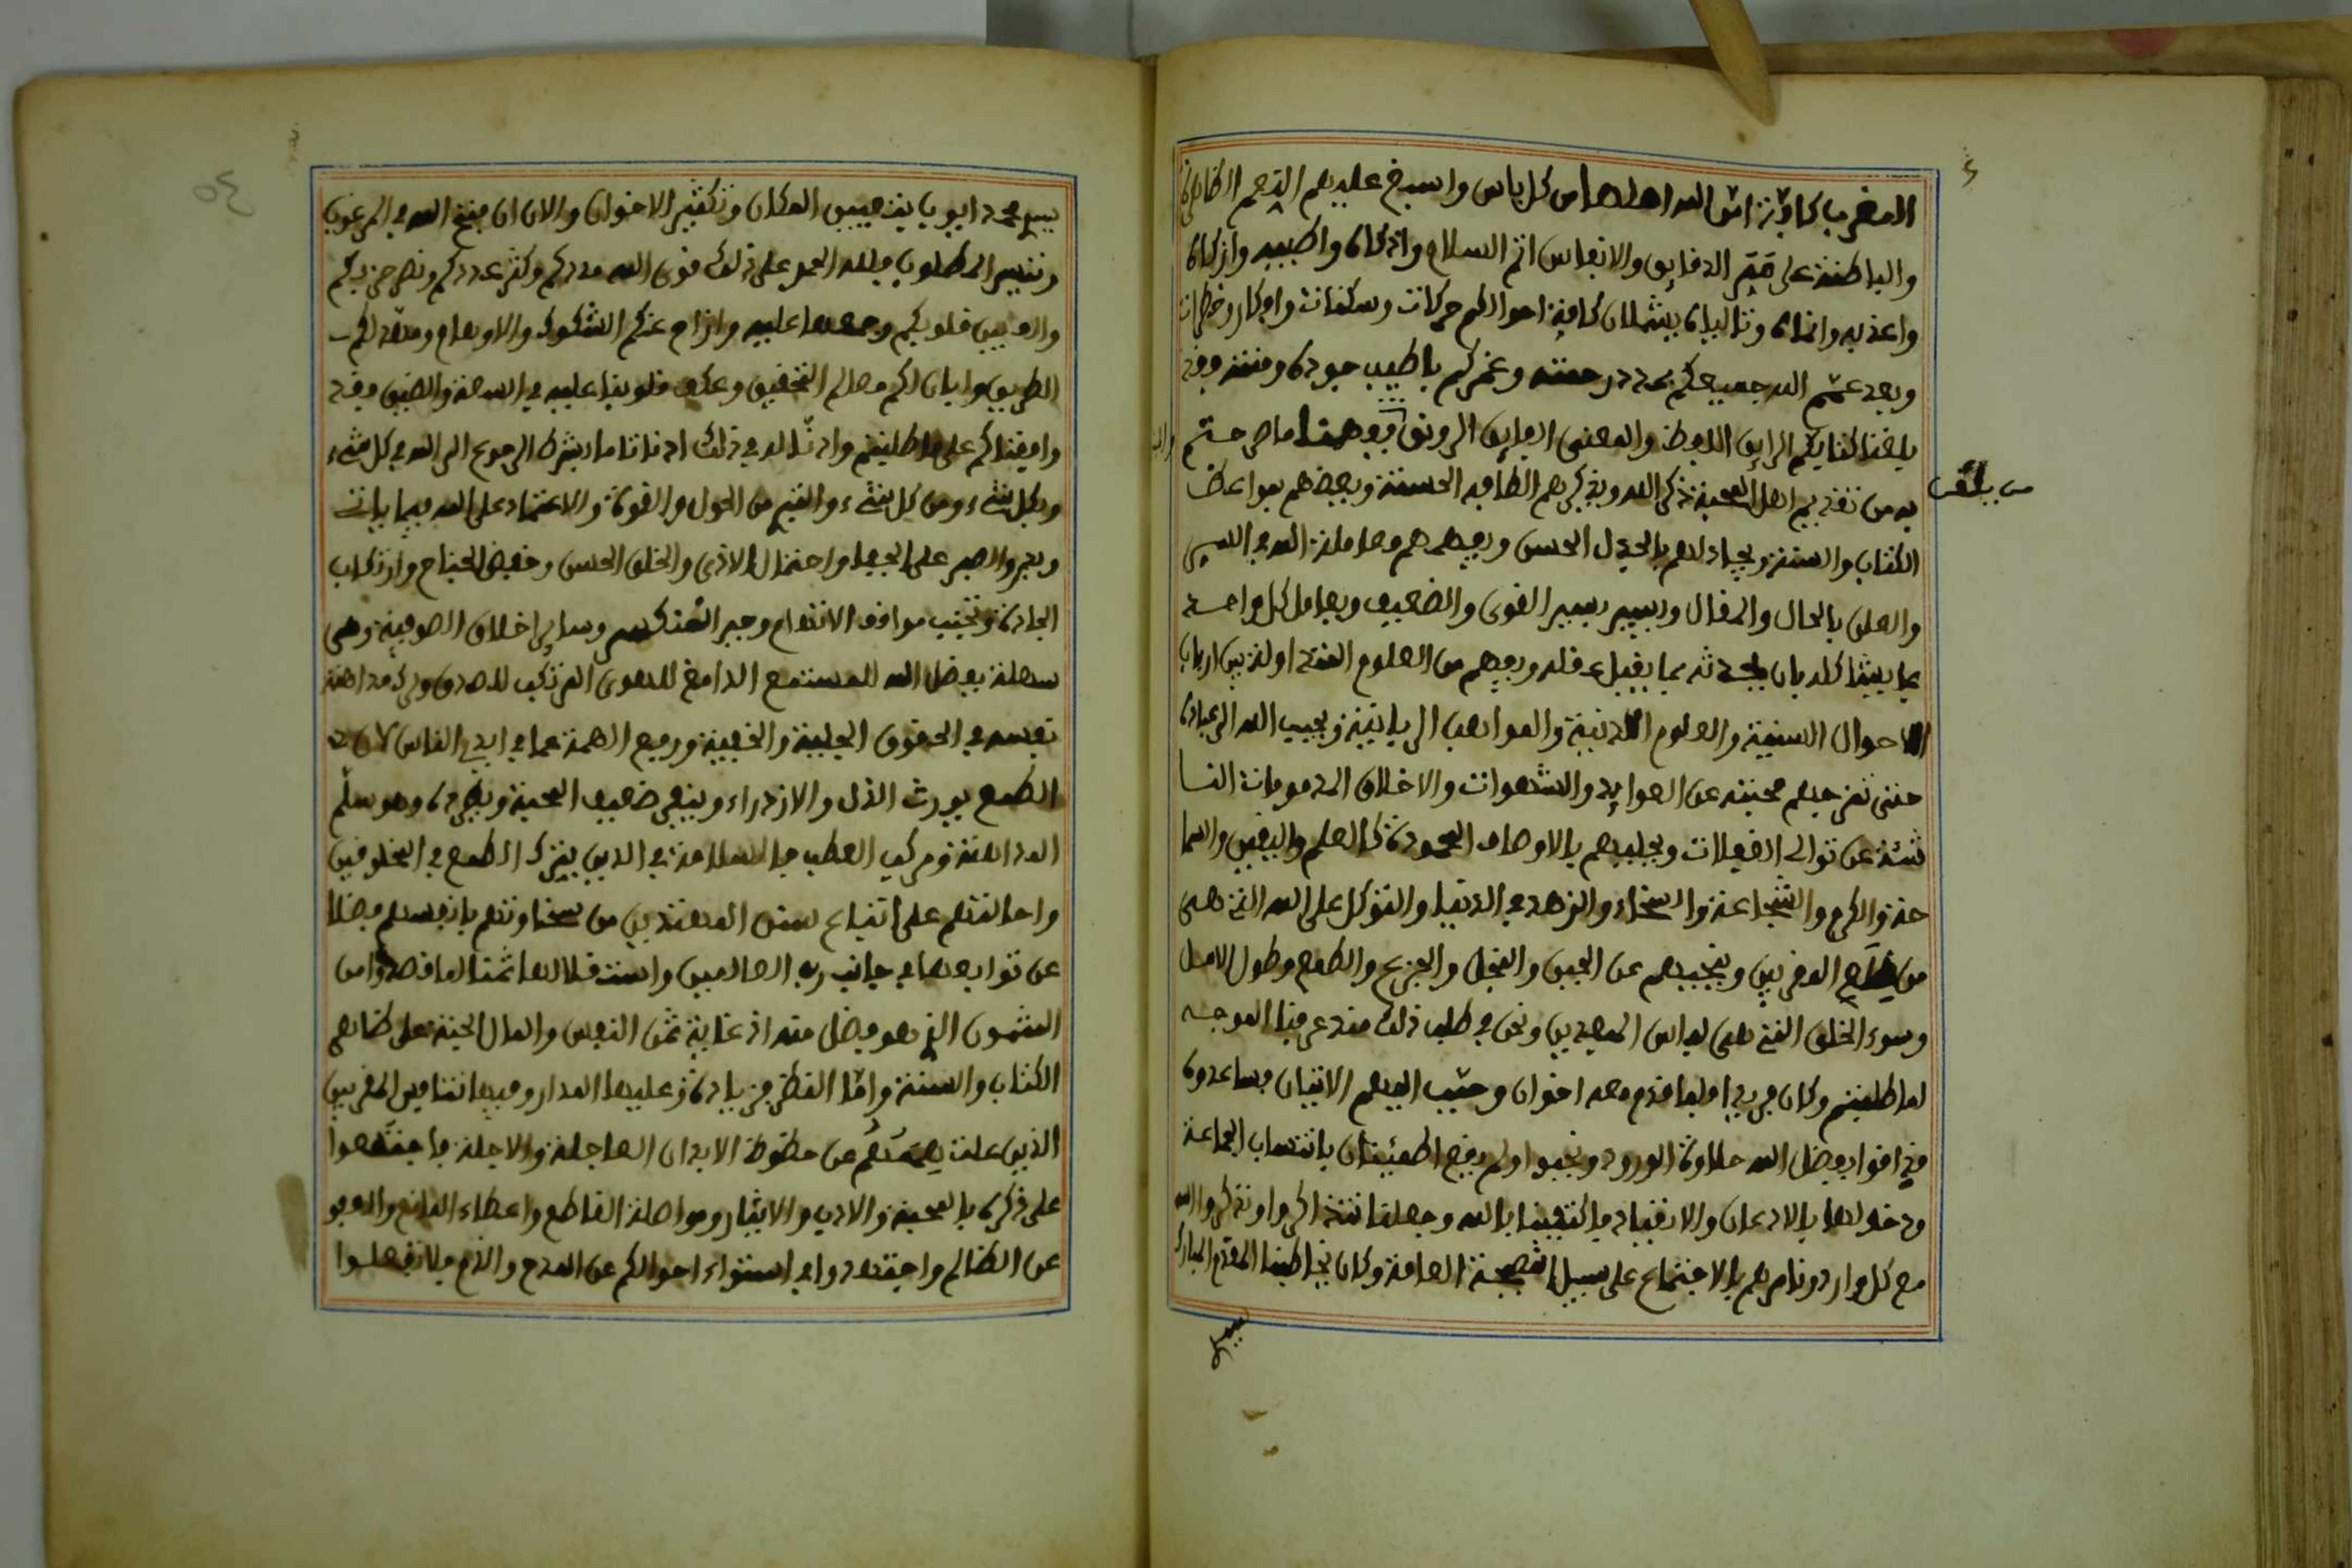 المغرب كافة امن الله اهلها من كل باس واسبغ عليهم النعم الظاهرة
والباطنة على ممر الدقايق والانفاس اتم السلام وازكاه واطيبه
واعذبه وانماه وتاليان يشملان كافة احوالكم حركات وسكنات وافكار وخطرات
وبعد عمكم الله جميعكم بمدد رحمته وغمركم باطيب جوده ومنته وقد
بلغنا كتابكم الرايق اللفظ والمعنى الفايق الرونق ففهمنا ما صرحتم
به من تقديم اهل المحبة ذكر الله وتذكيرهم الطافه الحسنة وبعضهم بمواعظ
الكتاب والسنة ويجادلهم بالجدال الحسن ويفهمهم معاملة الله في السر
والعلن بالحال والمقال ويسير بسير القوي والضعيف ويعامل كل واحد
بما يشاكله بان يحدثه بما يقبل عقله ويفهم من العلوم المتداولة بين ارباب
الاحوال السنية والعلوم اللدنية والمواهب الربانية ويحبب الله الى عباده
حتى تخرجهم محبته عن العوايد والشهوات والاخلاق المذمومات النا
شئة عن توالي الغفلات ويحليهم بالاوصاف المحمودة كالعلم واليقين والسما
حة والكرم والشجاعة والسخاء والزهد في الدنيا والتوكل على الله التي هي
من المقربين وينحيهم عن الجبن والبخل والجزع والطمع وطول الامل
وسوء الخلق التي هي لباس المبعدين ونحن في طلب ذلك منه عرفنا الموجه
لما طلبتم وكان فريدا ولما قدم معه اخوان وحبب اليهم الاتيان فساعدوه
فذاقوا بفضل الله حلاوة الورود ولم يقع اطمئنان بانتساب الجماعة
ودخولها بالاذعان والانقياد فاكتفينا بالله وجعلنا نتذاكر واونذكر والله
مع كل وارد ونامرهم بالاجتماع على سبيل المحبة العامة وكان يخاطبنا المقدم المبارك
سيدي
سيدي محمد ابو يا يف بتعيين المكان وتكثير الاخوان والان ان فتح الله في المرغوب
وتيسير المطلوب فلله الحمد على ذلك قوى الله مددكم وكثر عددكم ونصر حزبكم
والف بين قلوبكم وجمعها عليه وازاح عنكم الشكوك والاوهام ومهد لكم
الطريق وابان لكم معالم التحقيق وعكف قلوبنا عليه في السعة والضيق وقد
وافقناكم على ما طلبتم واذنا له في ذلك اذنا تاما بشرط الرجوع الى الله في كل شيء
وبكل شيء ومن كل شيء والتبري من الحول والقوة والاعتماد على الله فيما ياتي
ويذر والصبر على الجفا واحتمال الاذى والخلق الحسن وخفض الجناح وارتكاب
الجادة وتجنب مواقف الانتقام وجبر المنكسر وساير اخلاق الصوفية وهي
سهلة بفضل الله للمستمع الدامغ للهوى المرتكب للصدق وترك مداهنة
نفسه في الحقوق الجلية والخفية ورفع الهمة عما في ايدي الناس لان
الطمع يورث الذل والازدراء وينفي ضعيف المحبة ويطرده وهو سلم
المداهنة ومركب العطب فالسلامة في الدين بترك الطمع في المخلوقين
واعانتهم على اتباع سنن المهتدين من سخاوتهم بانفسهم فضلا
عن توابعها في جانب رب العالمين واستقلالها ثمنا لما قصدوا من
المثمون الذي هو فضل منه اذ غاية ثمن النفس والمال الجنة على ظاهر
الكتاب والسنة واما النظر فزيادة وعليها المدار وفيها تنافس المقربين
الذين علت هممهم عن حظوظ الابدان العاجلة والاجلة فاجتمعوا
على ذكره بالمحبة والادب والايثار ومواصلة القاطع واعطاء المانع والعفو
عن الظالم واجتهدوا في استواء احوالكم عن المدح والذم فلا تفعلوا